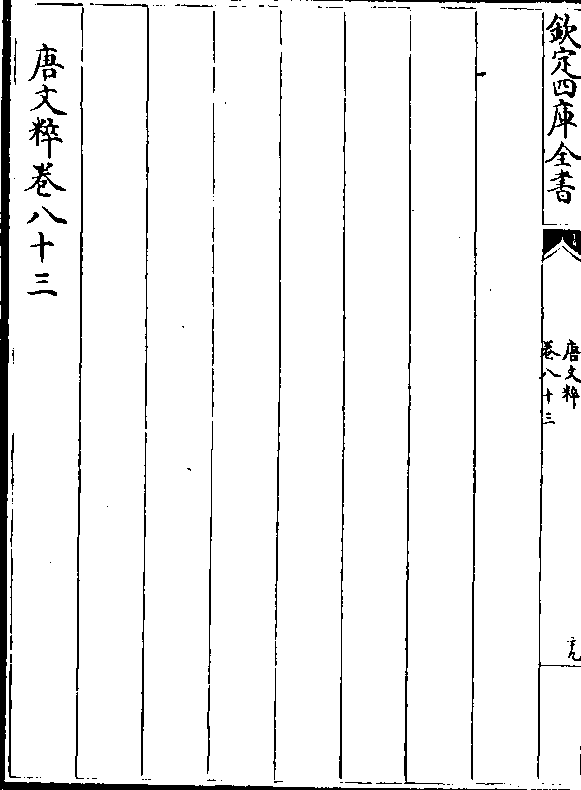 欽定四庫全書
唐文粹
卷八十三
唐文粹卷八十三